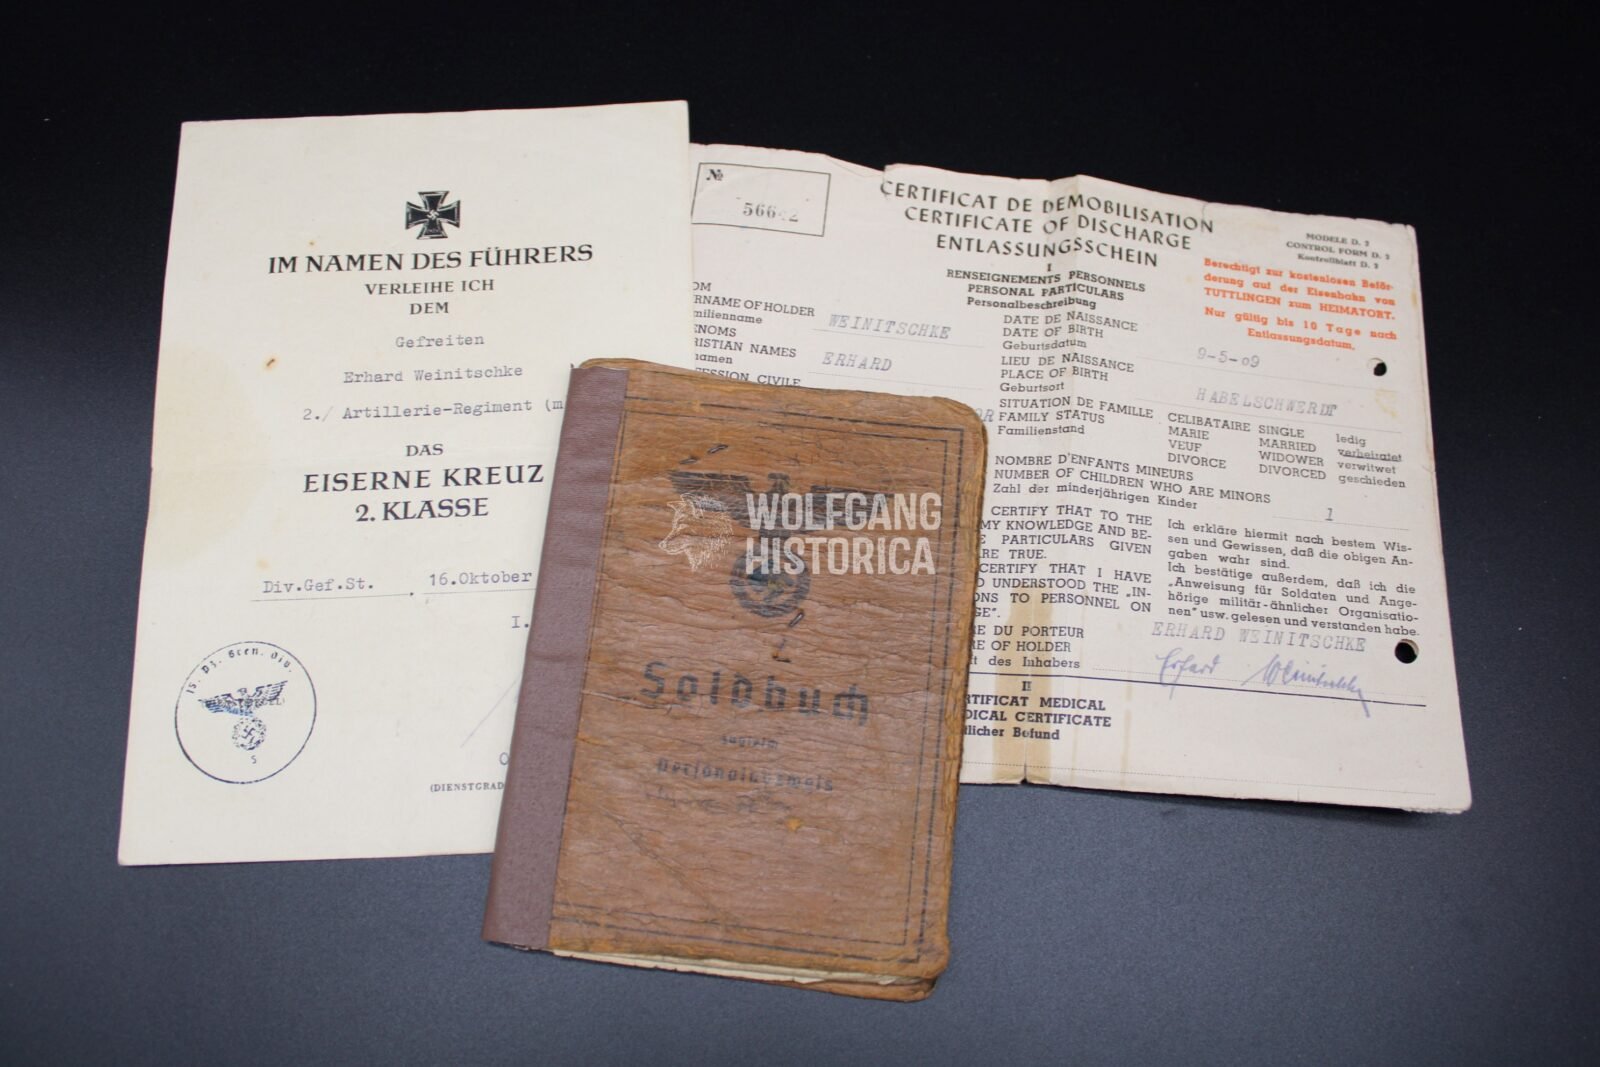 IM NAMEN DES FÜHRERS
VERLEIHE ICH
DEM
Gefreiten
Erhard Weinitschke
2./ Artillerie-Regiment (m
DAS
EISERNE KREUZ
2. KLASSE
Div.Gef.St. , 16.Oktober
I.
15. Pz. Gren. Div.
S
(DIENSTGRAD
Soldbuch
zugleich
Personalausweis
WOLFGANG
HISTORICA
№
CERTIFICAT DE DEMOBILISATION
CERTIFICATE OF DISCHARGE
ENTLASSUNGSSCHEIN
MODELE D. 2
CONTROL FORM D. 2
Kontrollblatt D. 2
Berechtigt zur kostenlosen Beför-
derung auf der Eisenbahn von
TUTTLINGEN zum HEIMATORT.
Nur gültig bis 10 Tage nach
Entlassungsdatum.
I
RENSEIGNEMENTS PERSONNELS
PERSONAL PARTICULARS
Personalbeschreibung
OM
RNAME OF HOLDER
milienname
WEINITSCHKE
ENOMS
RISTIAN NAMES
namen
ERHARD
ESSION CIVILE
OR
DATE DE NAISSANCE
DATE OF BIRTH
Geburtsdatum
9-5-09
LIEU DE NAISSANCE
PLACE OF BIRTH
Geburtsort
HABELSCHWERDT
SITUATION DE FAMILLE
FAMILY STATUS
Familienstand
CELIBATAIRE SINGLE ledig
MARIE MARRIED verheiratet
VEUF WIDOWER verwitwet
DIVORCE DIVORCED geschieden
NOMBRE D'ENFANTS MINEURS
NUMBER OF CHILDREN WHO ARE MINORS
Zahl der minderjährigen Kinder
1
CERTIFY THAT TO THE
MY KNOWLEDGE AND BE-
E PARTICULARS GIVEN
RE TRUE.
CERTIFY THAT I HAVE
D UNDERSTOOD THE „IN-
ONS TO PERSONNEL ON
GE".
Ich erkläre hiermit nach bestem Wis-
sen und Gewissen, daß die obigen An-
gaben wahr sind.
Ich bestätige außerdem, daß ich die
„Anweisung für Soldaten und Ange-
hörige militär-ähnlicher Organisatio-
nen" usw. gelesen und verstanden habe.
RE DU PORTEUR
RE OF HOLDER
ft des Inhabers
ERHARD WEINITSCHKE
Erhard Weinitschke
II
RTIFICAT MEDICAL
DICAL CERTIFICATE
tlicher Befund